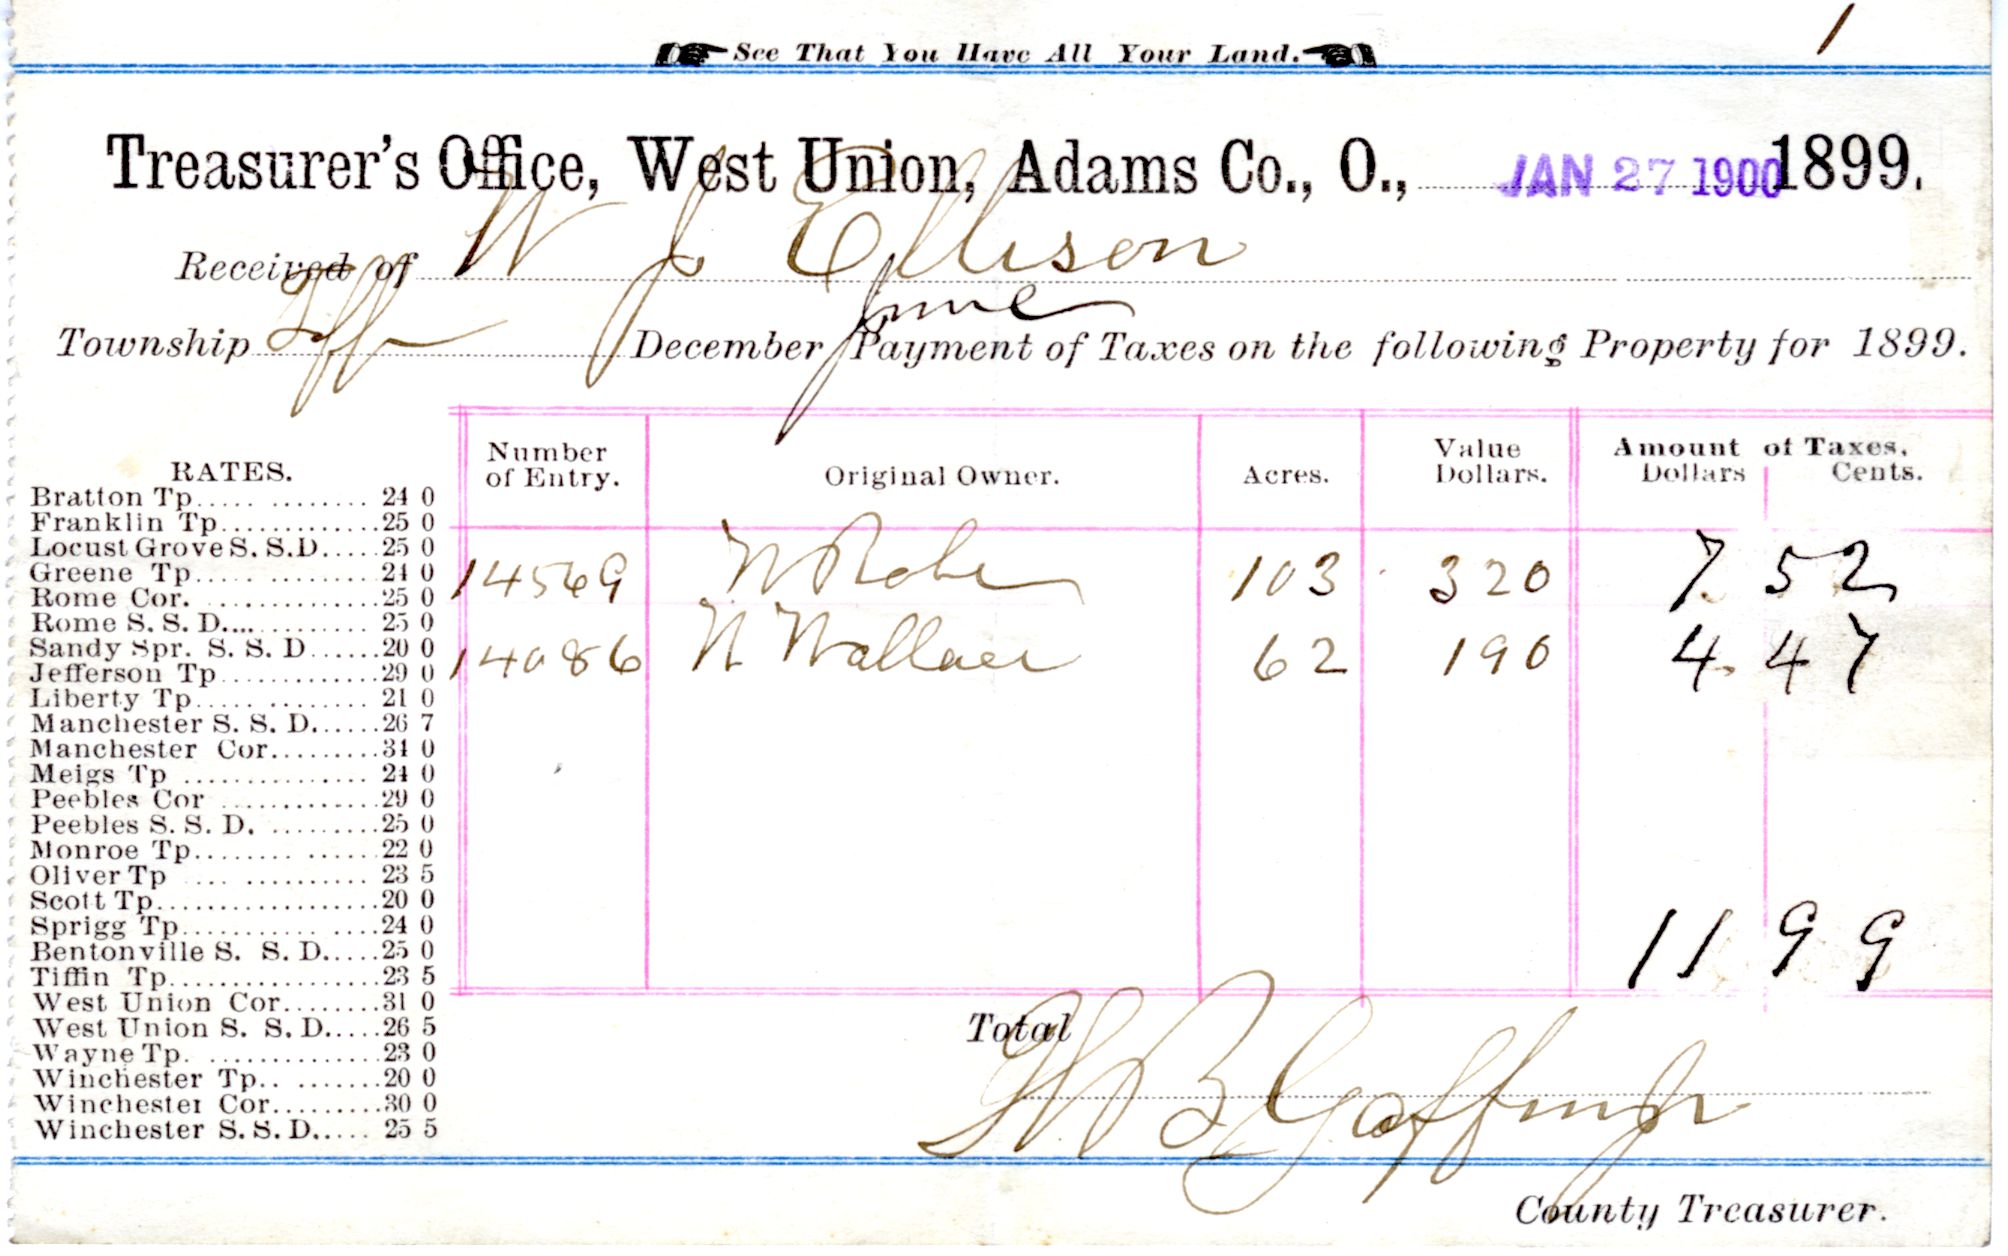 1
See That You Have All Your Land.
Treasurer's Office, West Union, Adams Co., O., JAN 27 1900 1899.
Received of W J Ellison
June
Township December Payment of Taxes on the following Property for 1899.
RATES.
Number of Entry. Original Owner. Acres. Value Dollars. Amount of Taxes. Dollars Cents.
Bratton Tp..... ......... 24 0
Franklin Tp.............25 0
Locust Grove S. S.D.....25 0
Greene Tp..... ......... 24 0
Rome Cor. .............25 0
Rome S. S. D..............25 0
Sandy Spr. S. S. D......20 0
Jefferson Tp.............29 0
Liberty Tp..... ......... 21 0
Manchester S. S. D......26 7
Manchester Cor.........34 0
Meigs Tp ................24 0
Peebles Cor .............29 0
Peebles S. S. D. .........25 0
Monroe Tp........ ......22 0
Oliver Tp .... .......... 23 5
Scott Tp..................20 0
Sprigg Tp........... ....24 0
Bentonville S. S. D.....25 0
Tiffin Tp..................23 5
West Union Cor........31 0
West Union S. S. D.....26 5
Wayne Tp. ..............23 0
Winchester Tp.. .......20 0
Winchester Cor.........30 0
Winchester S. S. D..... 25 5
14569 103 320 7. 52
14086 N Wallace 62 190 4. 47
11 99
Total
County Treasurer.